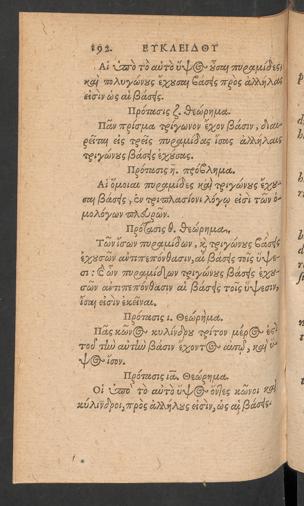 192. ΕΥΚΛΕΙΔΟΥ
Αἱ ὑπὸ τὸ αὐτὸ ὕψος οὖσαι πυραμίδες
καὶ πολυγώνους ἔχουσαι βάσεις πρὸς ἀλλήλας
εἰσὶν ὡς αἱ βάσεις.
Πρότασις ζ. Θεώρημα.
Πᾶν πρίσμα τρίγωνον ἔχον βάσιν, διαι-
ρεῖται εἰς τρεῖς πυραμίδας ἴσας ἀλλήλαις
τριγώνους βάσεις ἐχούσας.
Πρότασις η. πρόβλημα.
Αἱ ὅμοιαι πυραμίδες καὶ τριγώνους ἔχου-
σαι βάσεις, ἐν τριπλασίονι λόγῳ εἰσὶ τῶν ὁ-
μολόγων πλευρῶν.
Πρότασις θ. Θεώρημα.
Τῶν ἴσων πυραμίδων, καὶ τριγώνους βάσεις
ἐχουσῶν ἀντιπεπόνθασιν, αἱ βάσεις τοῖς ὕψε-
σι: καὶ ὧν πυραμίδων τριγώνους βάσεις ἐχου-
σῶν ἀντιπεπόνθασιν αἱ βάσεις τοῖς ὕψεσιν,
ἴσαι εἰσὶν ἐκεῖναι.
Πρότασις ι. Θεώρημα.
Πᾶς κῶνος κυλίνδρου τρίτον μέρος ἐστὶ
τοῦ τὴν αὐτὴν βάσιν ἔχοντος αὐτῷ, καὶ ὕ-
ψος ἴσον.
Πρότασις ια. Θεώρημα.
Οἱ ὑπὸ τὸ αὐτὸ ὕψος ὄντες κῶνοι καὶ
κύλινδροι, πρὸς ἀλλήλους εἰσὶν, ὡς αἱ βάσεις.